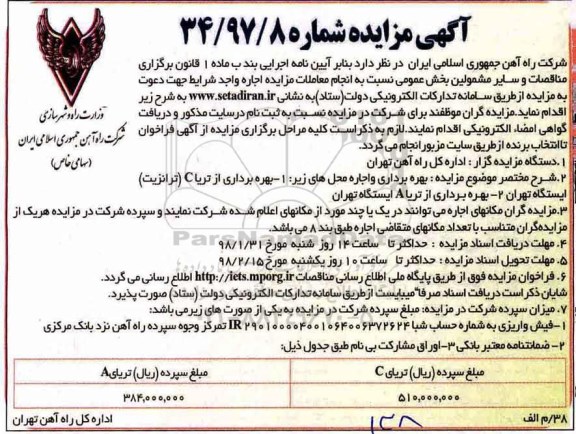 آگهی مزایده شماره ۳۴/۹۷/۸
وزارت راه و شهرسازی
شرکت راه آهن جمهوری اسلامی ایران
(سهامی خاص)
شرکت راه آهن جمهوری اسلامی ایران در نظر دارد بنابر آیین نامه اجرایی بند ب ماده ۱ قانون برگزاری
مناقصات و سایر مشمولین بخش عمومی نسبت به انجام معاملات مزایده اجاره واجد شرایط جهت دعوت
به مزایده ازطریق سامانه تدارکات الکترونیکی دولت(ستاد)به نشانی www.setadiran.ir به شرح زیر
اقدام نماید.مزایده گران موظفند برای شرکت در مزایده نسبت به ثبت نام درسایت مذکور و دریافت
گواهی امضاء الکترونیکی اقدام نمایند.لازم به ذکراست کلیه مراحل برگزاری مزایده از آگهی فراخوان
تاانتخاب برنده ازطریق سایت مزبورانجام می گردد.
۱.دستگاه مزایده گزار : اداره کل راه آهن تهران
۲.شرح مختصر موضوع مزایده : بهره برداری واجاره محل های زیر: ۱-بهره برداری از تریا C (ترانزیت)
ایستگاه تهران ۲- بهره برداری از تریا A ایستگاه تهران
۳.مزایده گران مکانهای اجاره می توانند در یک یا چند مورد از مکانهای اعلام شده شرکت نمایند و سپرده شرکت در مزایده هریک از
مزایده‌گران متناسب با تعداد مکانهای متقاضی اجاره طبق بند ۸ می باشد.
۴. مهلت دریافت اسناد مزایده : حداکثر تا ساعت ۱۴ روز شنبه مورخ ۹۸/۱/۳۱
۵. مهلت تحویل اسناد مزایده : حداکثر تا ساعت ۱۰ روز یکشنبه مورخ ۹۸/۲/۱۵
۶. فراخوان مزایده فوق از طریق پایگاه ملی اطلاع رسانی مناقصات http://iets.mporg.ir اطلاع رسانی می گردد.
شایان ذکراست دریافت اسناد صرفاً میبایست ازطریق سامانه تدارکات الکترونیکی دولت (ستاد) صورت پذیرد.
۷. میزان سپرده شرکت در مزایده: مبلغ سپرده شرکت در مزایده به یکی از صورت های زیر می باشد:
۱-فیش واریزی به شماره حساب شبا IR ۲۹۰۱۰۰۰۰۴۰۰۱۰۶۴۰۰۶۳۷۲۶۲۴ تمرکز وجوه سپرده راه آهن نزد بانک مرکزی
۲- ضمانتنامه معتبر بانکی ۳-اوراق مشارکت بی نام طبق جدول ذیل:
مبلغ سپرده (ریال) تریای C	مبلغ سپرده (ریال) تریای A
۵۱۰,۰۰۰,۰۰۰	۳۸۴,۰۰۰,۰۰۰
۳۸/م الف	۱۳۸	اداره کل راه آهن تهران